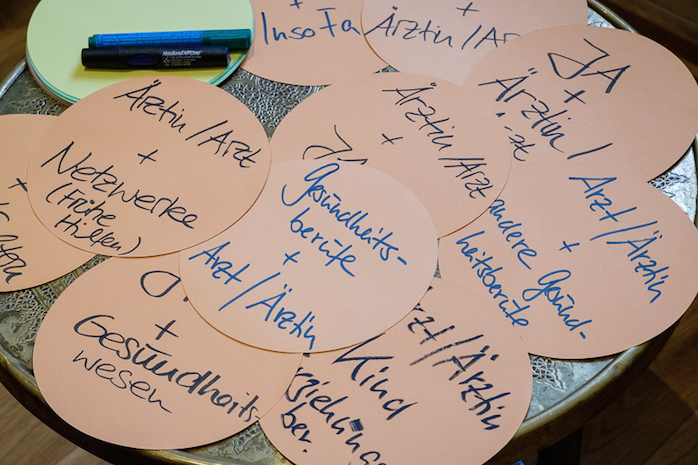 +
InsoFa
+
Ärztin/
JA
+
Ärztin/
Ärztin/Arzt
+
Netzwerke
(Frühe
Hilfen)
Ärztin/Arzt
+
+
Gesundheits-
berufe
+
Arzt/Ärztin
Arzt/Ärztin
+
andere Gesund-
heitsberufe
+
Gesundheits-
wesen
Arzt/Ärztin
Kind
ber.